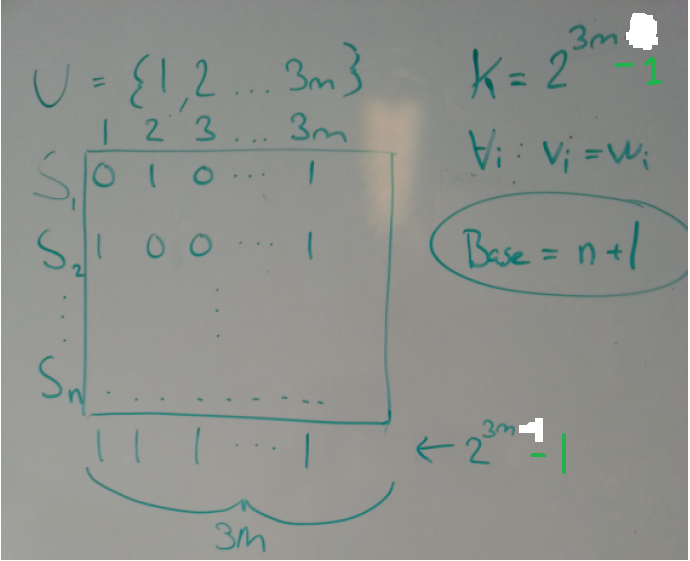 U = {1,2 ... 3m}
1 2 3 ... 3m
S₁ 0 1 0 ... 1
S₂ 1 0 0 ... 1
Sₙ . . . . . . . . .
1 1 1 ... 1 ← 2³ᵐ - 1
3m
K = 2³ᵐ - 1
∀i : vᵢ = wᵢ
Base = n + 1